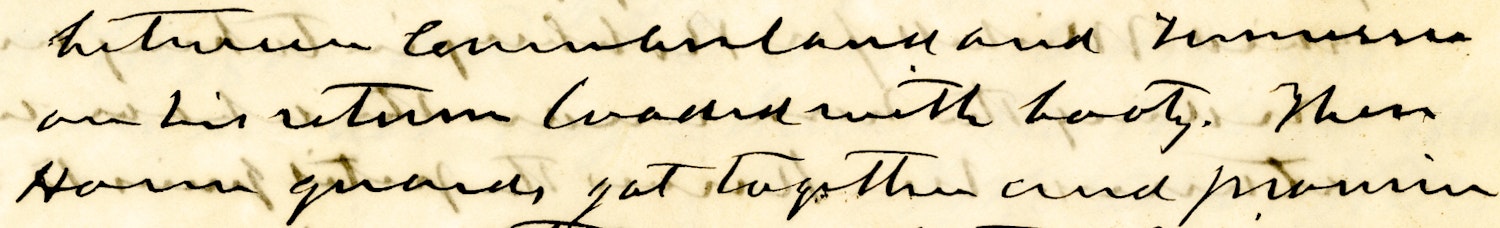 between Cumberland and Tennessee
on his return loaded with booty. These
Home guards got together and promise